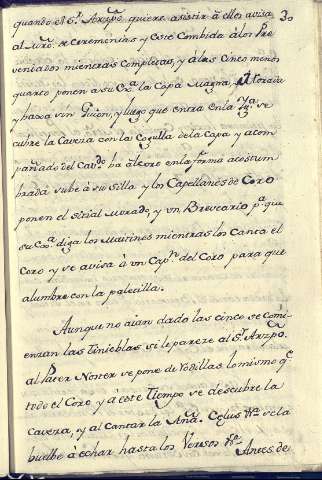 quando el S.r Arzpo. quiere asistir à ellos avisa 30
al Mro. de ceremonias y este Combida à los Pre
vendados mientras Completas, y à las cinco menos
quarto ponen a su Exa. la Capa Magna,
y baxa un Guion, y luego que entra en la Yga. se
cubre la Caveza con la Cogulla de la Capa y acom
pañado del Cavdo. ba àl coro en la forma acostum
brada sube à su silla y los Capellanes de Coro
ponen el sitial Morado, y un Breviario pa. que
su Exa. diga los Maitines mientras los Canta el
Coro y se avisa à un Capn. del Coro para que
alumbre con la paletilla.
Aunque no aian dado las cinco se Comi
enzan las Tinieblas si le parece al S.r Arzpo.
al Pater Noster se pone de Rodillas lo mismo qe.
todo el Coro y à este Tiempo se descubre la
Caveza, y al cantar la Aña. se la
buelbe à echar hasta los Versos Antes de